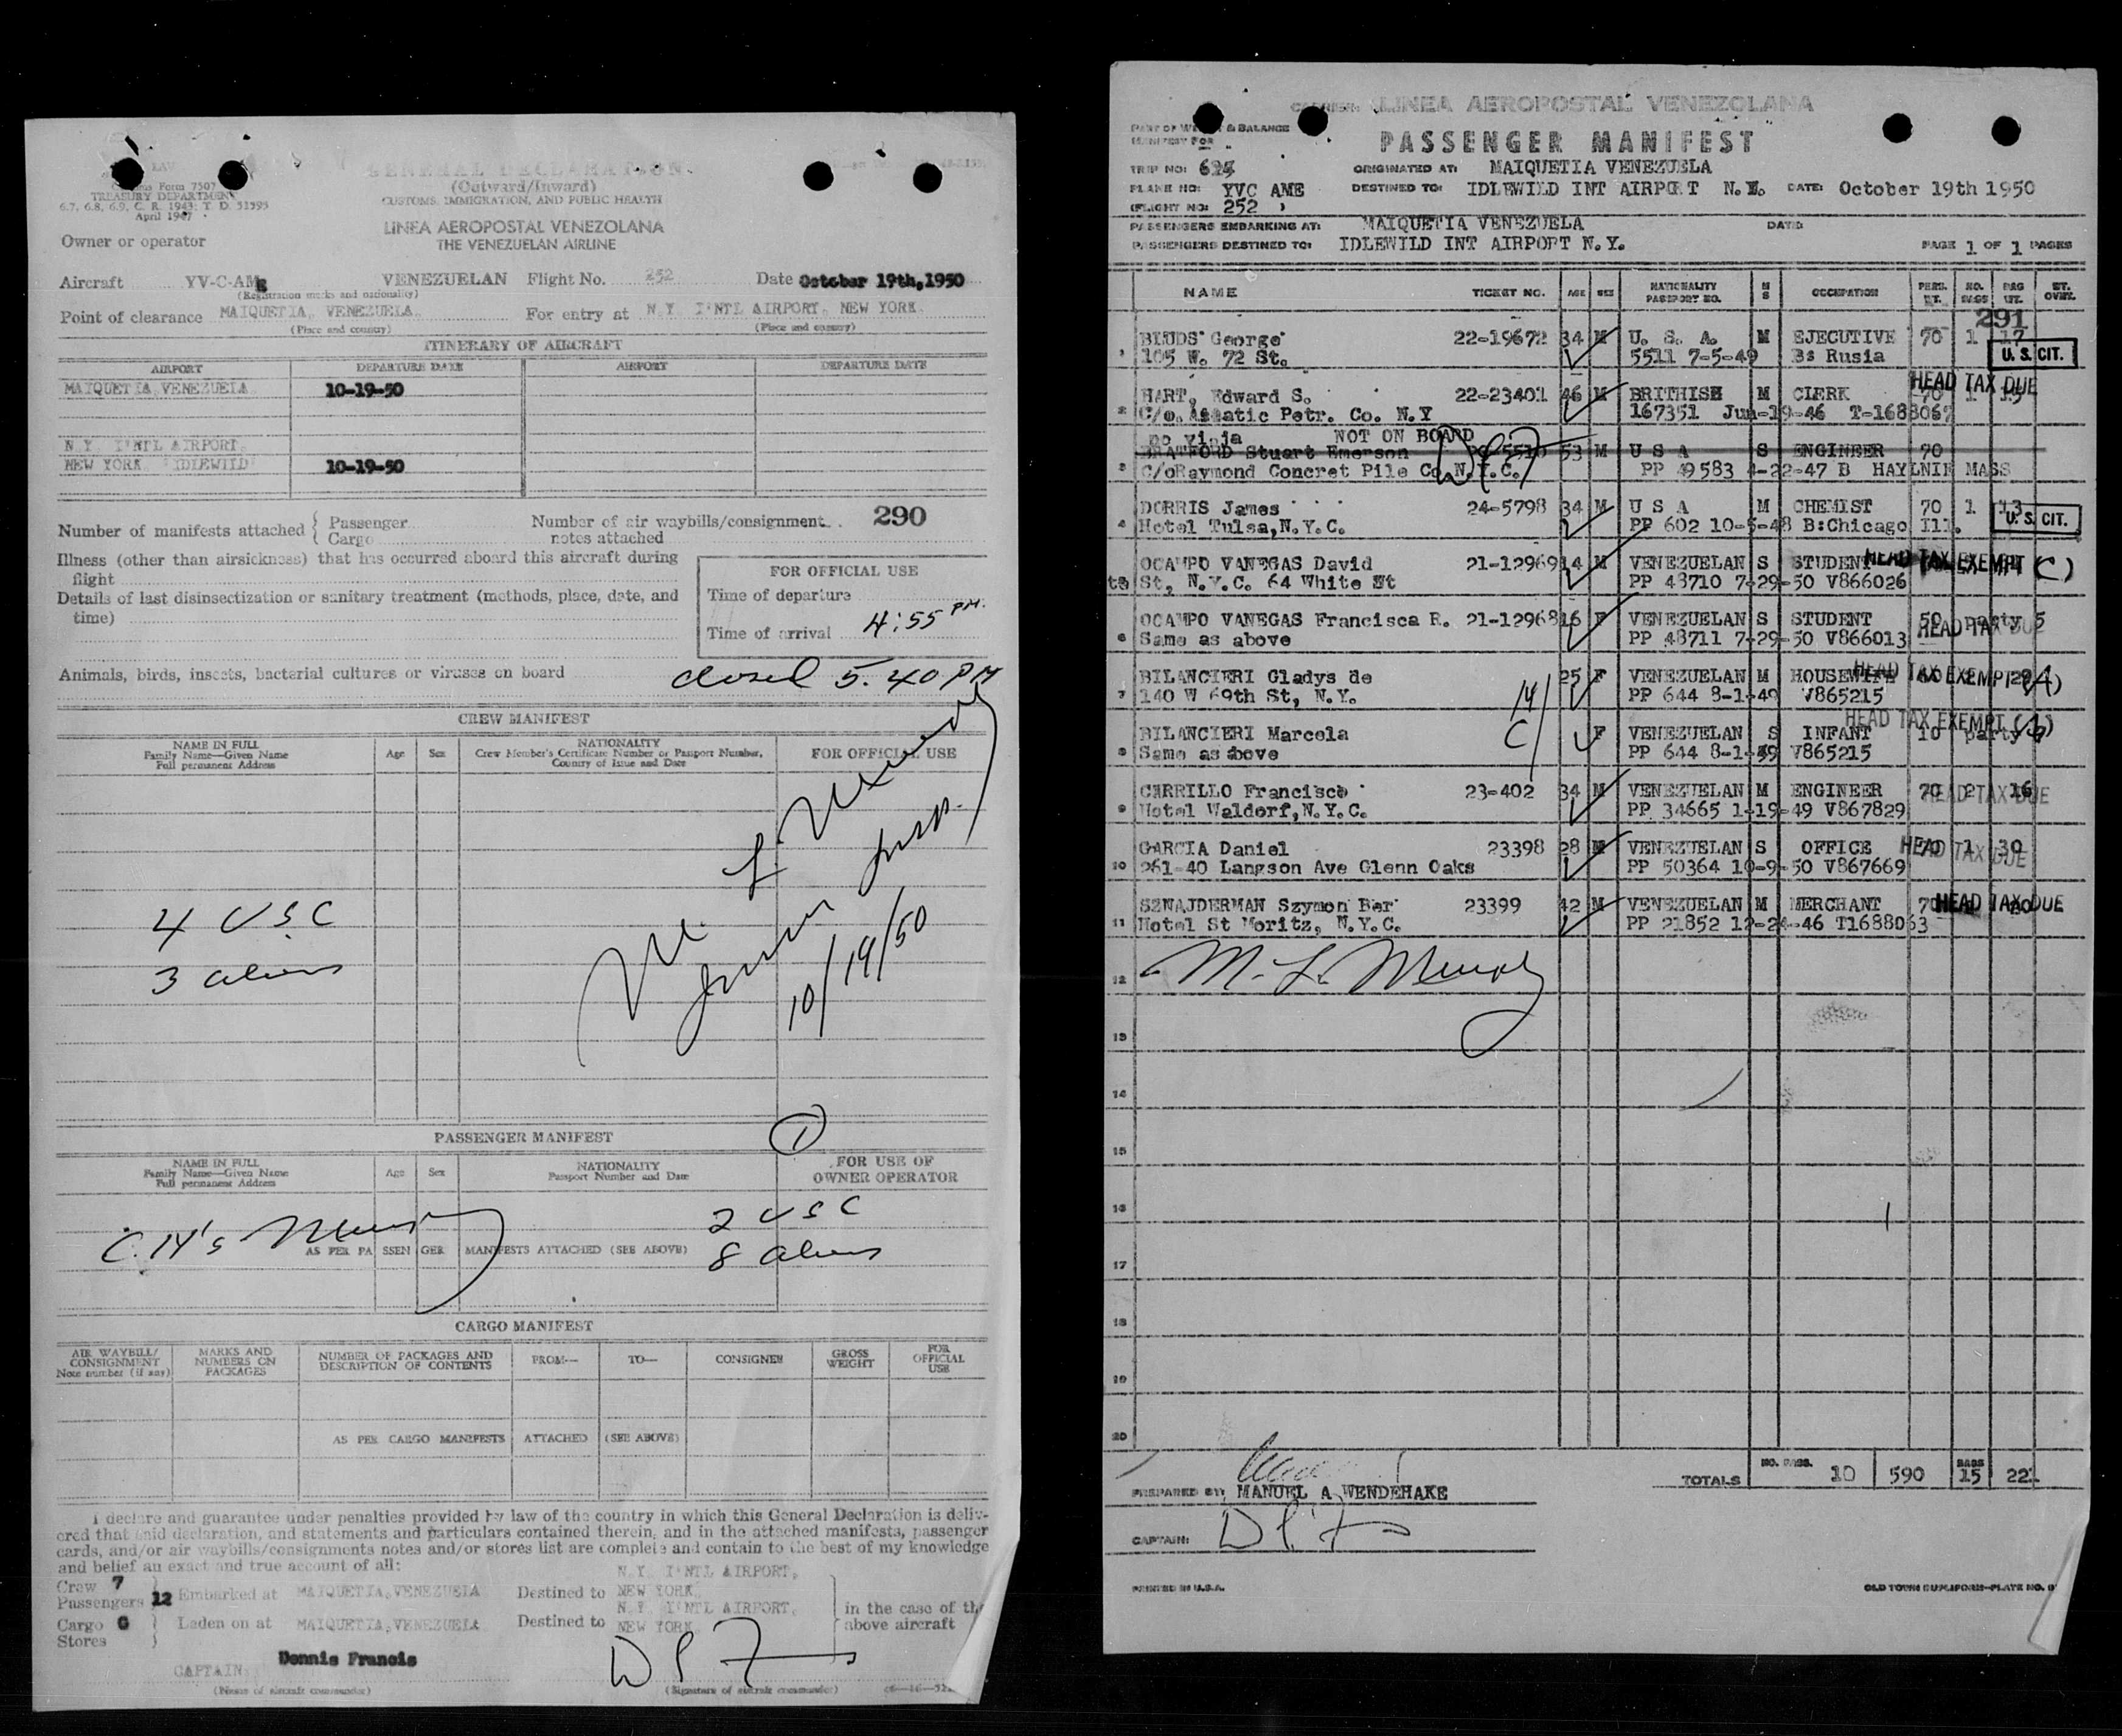 GENERAL DECLARATION
(Outward/Inward)
CUSTOMS, IMMIGRATION, AND PUBLIC HEALTH
Form 7507
TREASURY DEPARTMENT
6.7, 6.8, 6.9, C. R. 1943; T. D. 51595
April 1947
LINEA AEROPOSTAL VENEZOLANA
THE VENEZUELAN AIRLINE
Owner or operator
Aircraft YV-C-AME VENEZUELAN Flight No. 252 Date October 19th,1950
(Registration marks and nationality)
Point of clearance MAIQUETIA, VENEZUELA. For entry at N.Y. I'NTL AIRPORT, NEW YORK.
(Place and country) (Place and country)
ITINERARY OF AIRCRAFT
AIRPORT DEPARTURE DATE AIRPORT DEPARTURE DATE
MAIQUETIA, VENEZUELA 10-19-50
N.Y. I'NTL AIRPORT,
NEW YORK "IDLEWILD" 10-19-50
Number of manifests attached { Passenger
Cargo
Number of air waybills/consignment
notes attached
290
Illness (other than airsickness) that has occurred aboard this aircraft during
flight
Details of last disinsectization or sanitary treatment (methods, place, date, and
time)
FOR OFFICIAL USE
Time of departure
Time of arrival 4:55 PM.
Animals, birds, insects, bacterial cultures or viruses on board
closed 5.40 PM
CREW MANIFEST
NAME IN FULL
Family Name—Given Name
Full permanent Address
Age Sex
NATIONALITY
Crew Member's Certificate Number or Passport Number,
Country of Issue and Date
FOR OFFICIAL USE
4 USC
3 aliens
10/19/50
1
PASSENGER MANIFEST
NAME IN FULL
Family Name—Given Name
Full permanent Address
Age Sex
NATIONALITY
Passport Number and Date
FOR USE OF
OWNER OPERATOR
2 USC
8 aliens
AS PER PASSENGER MANIFESTS ATTACHED (SEE ABOVE)
CARGO MANIFEST
AIR WAYBILL/
CONSIGNMENT
Note number (if any)
MARKS AND
NUMBERS ON
PACKAGES
NUMBER OF PACKAGES AND
DESCRIPTION OF CONTENTS
FROM— TO— CONSIGNEE
GROSS
WEIGHT
FOR
OFFICIAL
USE
AS PER CARGO MANIFESTS ATTACHED (SEE ABOVE)
I declare and guarantee under penalties provided by law of the country in which this General Declaration is deliv-
ered that said declaration, and statements and particulars contained therein, and in the attached manifests, passenger
cards, and/or air waybills/consignments notes and/or stores list are complete and contain to the best of my knowledge
and belief an exact and true account of all:
Crew 7
Passengers 12 Embarked at MAIQUETIA, VENEZUELA Destined to N.Y. I'NTL AIRPORT, NEW YORK
Cargo 0
Stores
Laden on at MAIQUETIA, VENEZUELA Destined to N.Y. I'NTL AIRPORT, NEW YORK
in the case of the
above aircraft
CAPTAIN: Dennis Francis
(Name of aircraft commander) (Signature of aircraft commander)
CARRIER: LINEA AEROPOSTAL VENEZOLANA
PART OF WEIGHT & BALANCE
MANIFEST FOR
PASSENGER MANIFEST
TRIP NO: ORIGINATED AT: MAIQUETIA VENEZUELA
PLANE NO: YVC AME DESTINED TO: IDLEWILD INT AIRPORT N.Y. DATE: October 19th 1950
(FLIGHT NO: 252 )
PASSENGERS EMBARKING AT: MAIQUETIA VENEZUELA DATE:
PASSENGERS DESTINED TO: IDLEWILD INT AIRPORT N.Y. PAGE 1 OF 1 PAGES
NAME TICKET NO. AGE SEX NATIONALITY PASSPORT NO. M S OCCUPATION PERS. WT. NO. BAGS BAG WT. WT. OVER.
291
BLUDS George 22-19672 34 M U. S. A. M EJECUTIVE 70 1 17
1 105 W. 72 St. 5511 7-5-49 B: Rusia U.S. CIT.
HART, Edward S. 22-23401 46 M BRITHISH M CLERK 70 1 HEAD TAX DUE
2 C/o. Asiatic Petr. Co. N.Y 167351 Jun-19-46 T-1688067
no viaja NOT ON BOARD
BRATFORD Stuart Emerson 53 M U S A S ENGINEER 70
3 C/oRaymond Concret Pile Co N.Y.C. PP 49583 4-22-47 B HAYLNIE MASS
DORRIS James 24-5798 34 M U S A M CHEMIST 70 1 13
4 Hotel Tulsa,N.Y.C. PP 602 10-5-48 B:Chicago Ill. U.S. CIT.
OCAMPO VANEGAS David 21-12969 14 M VENEZUELAN S STUDENT HEAD TAX EXEMPT (C)
St, N.Y.C. 64 White St PP 48710 7-29-50 V866026
OCAMPO VANEGAS Francisca R. 21-12968 16 F VENEZUELAN S STUDENT 50 party 5
6 Same as above PP 48711 7-29-50 V866013 HEAD TAX DUE
BILANCIERI Gladys de 25 F VENEZUELAN M HOUSEWIFE HEAD TAX EXEMPT (A)
7 140 W 69th St, N.Y. PP 644 8-1-49 V865215
BILANCIERI Marcela F VENEZUELAN S INFANT 10 party HEAD TAX EXEMPT
8 Same as above PP 644 8-1-49 V865215
CARRILLO Francisco 23-402 34 M VENEZUELAN M ENGINEER 70 2 16 HEAD TAX DUE
9 Hotel Waldorf,N.Y.C. PP 34665 1-19-49 V867829
GARCIA Daniel 23398 28 M VENEZUELAN S OFFICE 70 1 30 HEAD TAX DUE
10 261-40 Langson Ave Glenn Oaks PP 50364 10-9-50 V867669
SZNAJDERMAN Szymon Ber 23399 42 M VENEZUELAN M MERCHANT 70 20 HEAD TAX DUE
11 Hotel St Moritz, N.Y.C. PP 21852 12-24-46 T1688063
12
13
14
15
16
17
18
19
20
TOTALS NO. PASS. 10 590 BAGS 15 221
PREPARED BY: MANUEL A WENDEHAKE
CAPTAIN:
PRINTED IN U.S.A. OLD TOWN DUPLIFORM—PLATE NO.